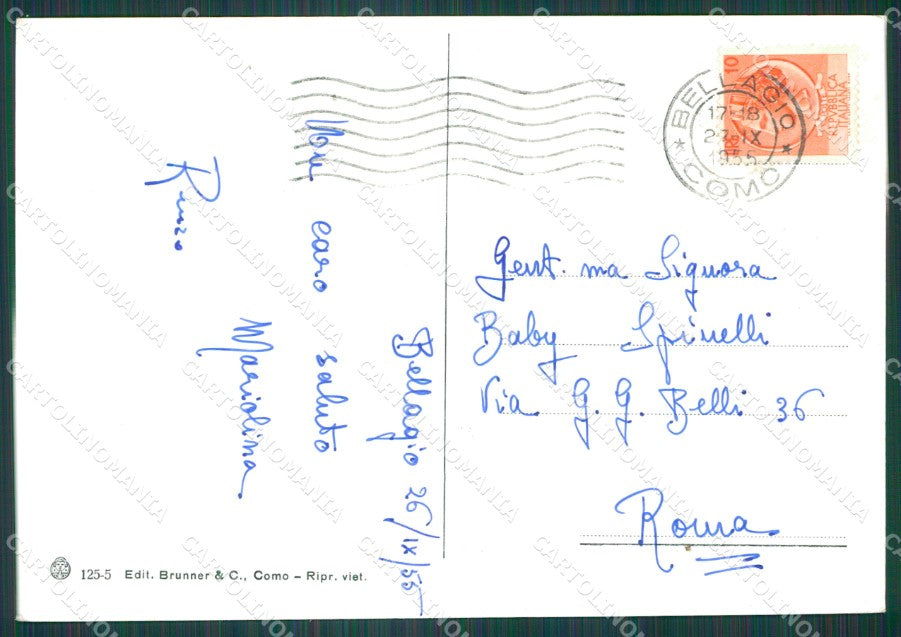 Bellagio 26/IX/55
Un caro saluto
Mariolina
Renzo
Gent.ma Signora
Baby Spinelli
Via G. G. Belli 36
Roma
BELLAGIO
17-18
IX
1955
* (COMO) *
10
REPUBBLICA
ITALIANA
125-5 Edit. Brunner & C., Como – Ripr. viet.
CARTOLINOMANIA